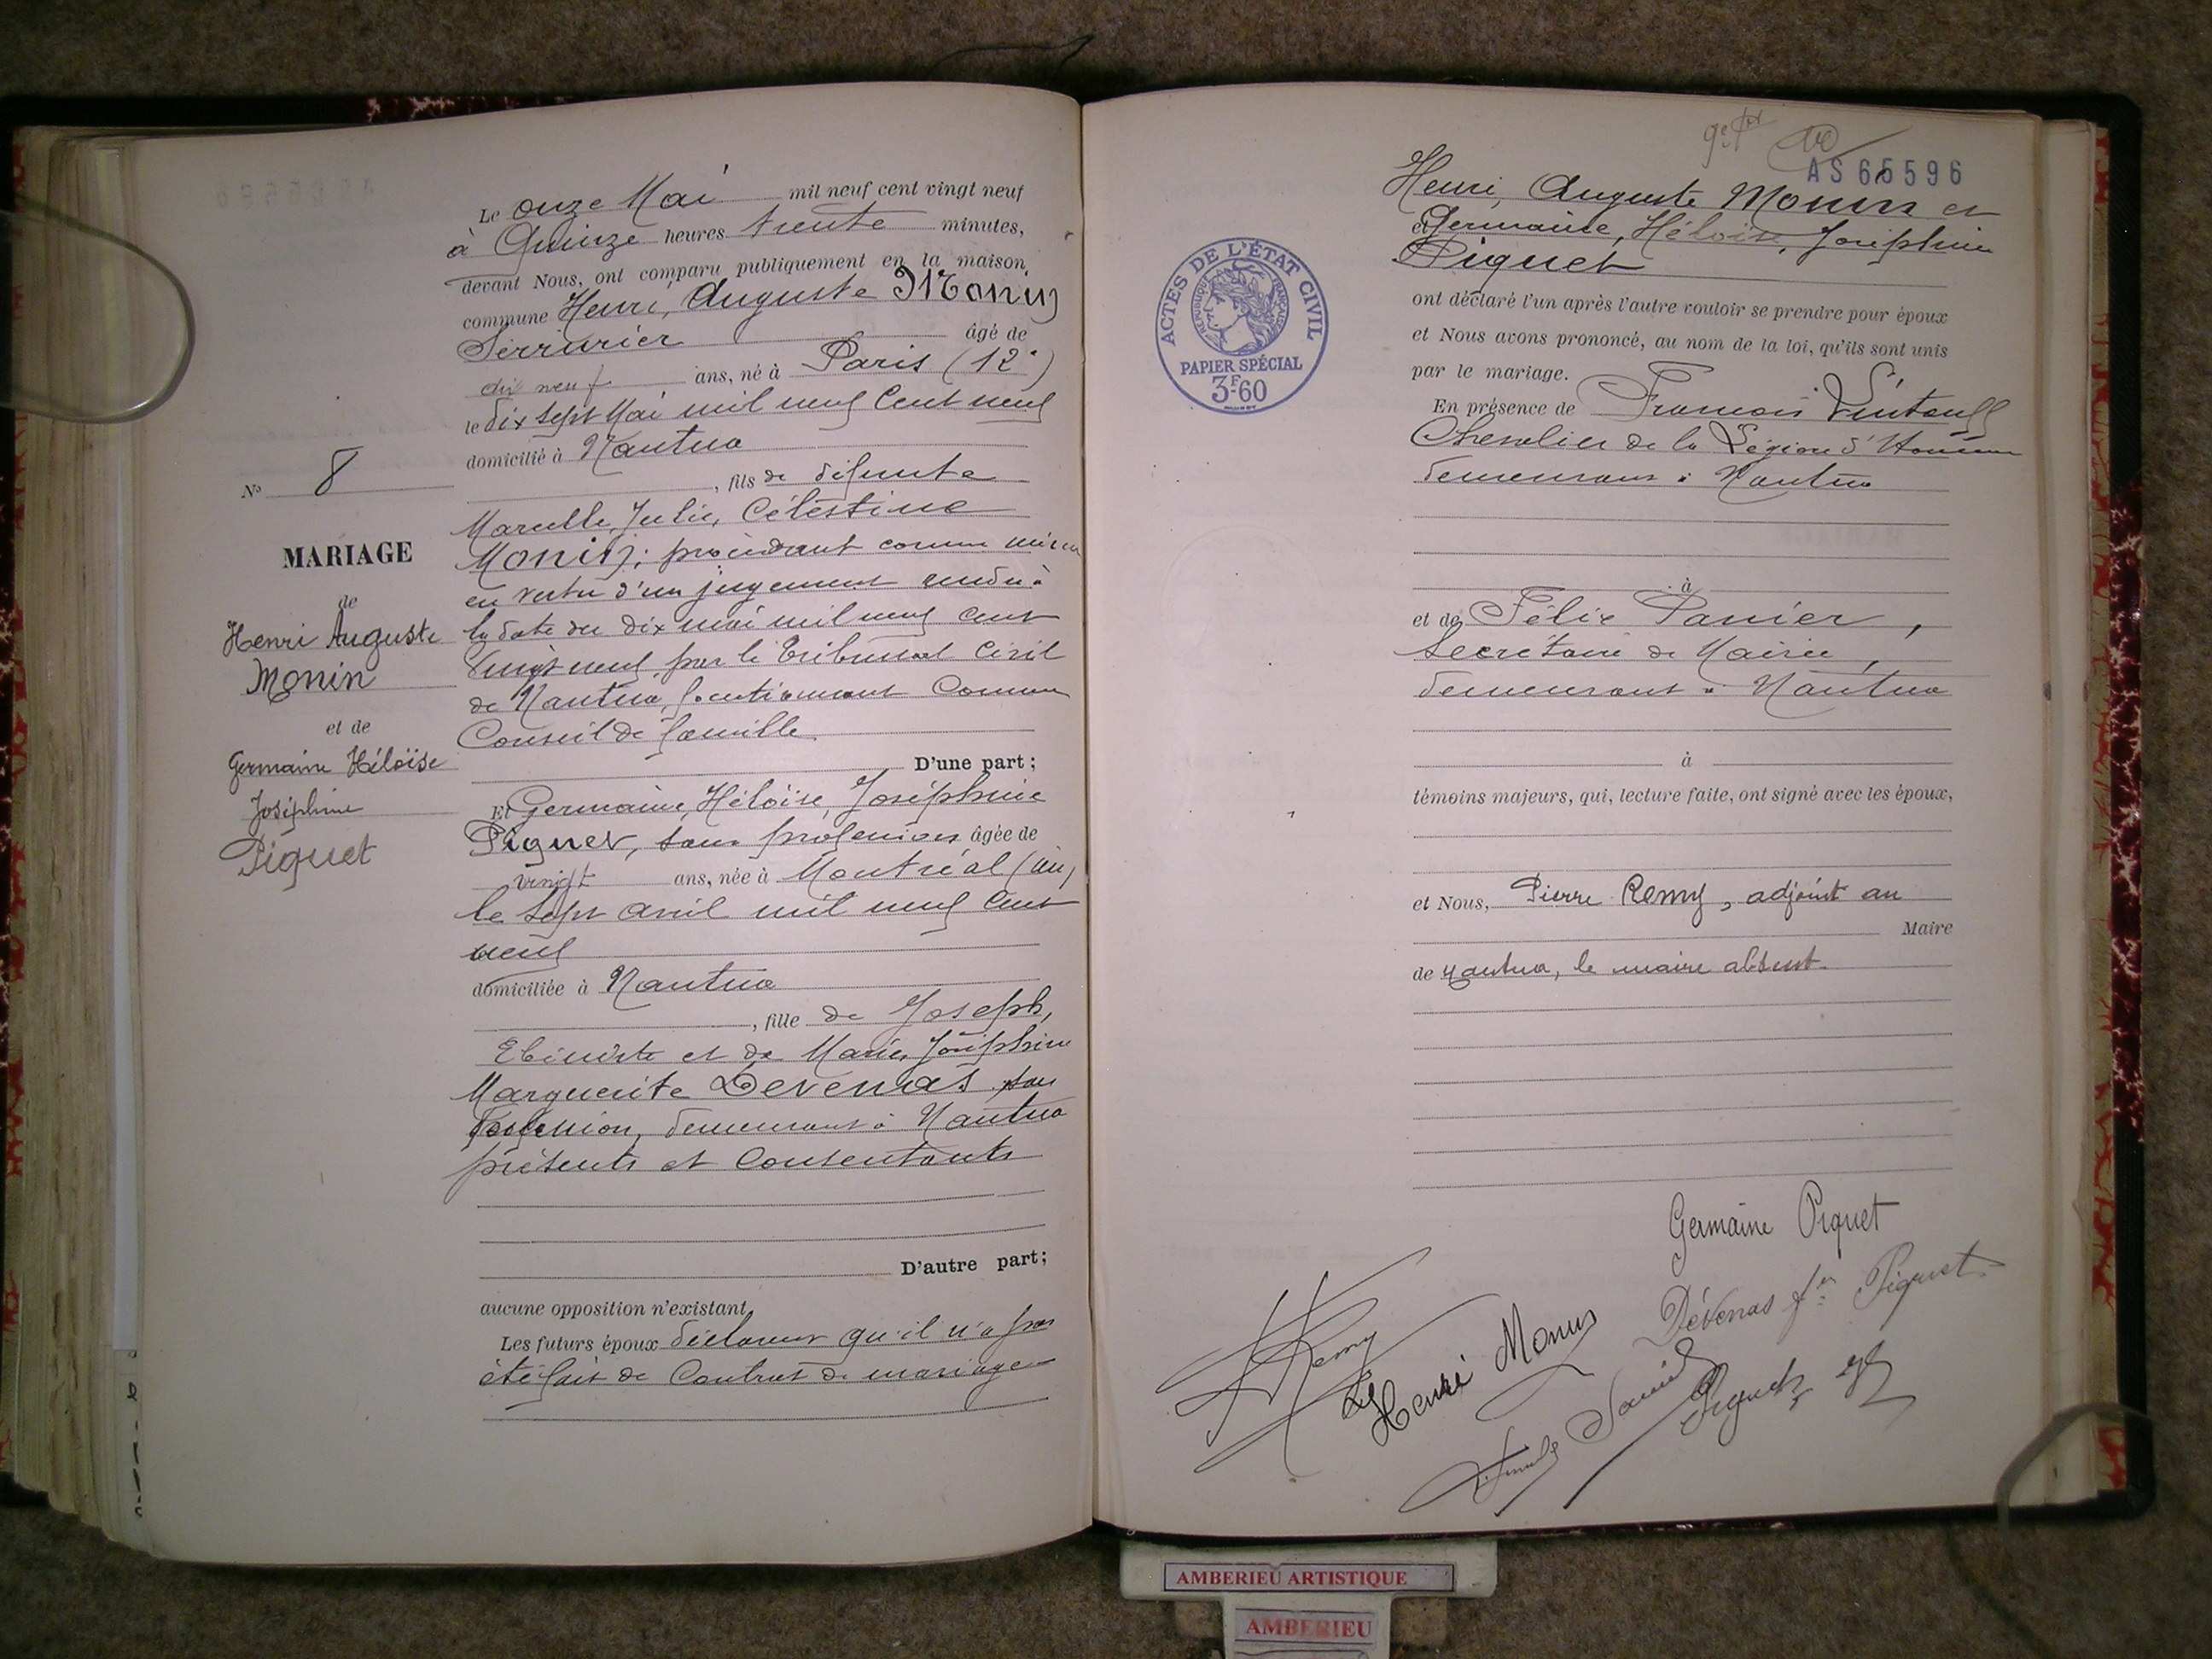 Le onze Mai mil neuf cent vingt neuf
à Quinze heures trente minutes,
devant Nous, ont comparu publiquement en la maison
commune Henri, Auguste Monin
Serrurier âgé de
dix neuf ans, né à Paris (12e)
le dix sept Mai mil neuf Cent neuf
domicilié à Nantua
, fils de défunte
Marcelle, Julie, Célestine
Monin; procédant comme mineur
en vertu d'un jugement rendu à
la date du dix mai mil neuf cent
vingt neuf par le Tribunal Civil
de Nantua, fonctionnant Comme
Conseil de famille.
D'une part;
Et Germaine, Héloïse, Joséphine
Piquet, sans profession âgée de
vingt ans, née à Montréal (Ain)
le sept avril mil neuf Cent
neuf
domiciliée à Nantua
, fille de Joseph,
Ebéniste et de Marie, Joséphine
Marguerite Devenas sans
profession, demeurant à Nantua
présents et Consentants
D'autre part;
aucune opposition n'existant,
Les futurs époux déclarent qu'il n'a pas
été fait de Contrat de mariage
No 8
MARIAGE
de
Henri Auguste
Monin
et de
Germaine Héloïse
Joséphine
Piquet
AS 65596
Henri, Auguste Monin et
et Germaine, Héloïse, Joséphine
Piquet
ont déclaré l'un après l'autre vouloir se prendre pour époux
et Nous avons prononcé, au nom de la loi, qu'ils sont unis
par le mariage.
En présence de François
Chevalier de la Légion d'Honneur
demeurant à Nantua
à
et de Félix Panier,
Secrétaire de Mairie,
demeurant à Nantua
à
témoins majeurs, qui, lecture faite, ont signé avec les époux,
et Nous, Pierre Remy, adjoint au
Maire
de Nantua, le maire absent.
ACTES DE L'ÉTAT CIVIL
RÉPUBLIQUE FRANÇAISE
PAPIER SPÉCIAL
3F-60
Germaine Piquet
Dévenas fe Piquet
Remy
Henri Monin
Piquet
AMBERIEU ARTISTIQUE
AMBERIEU